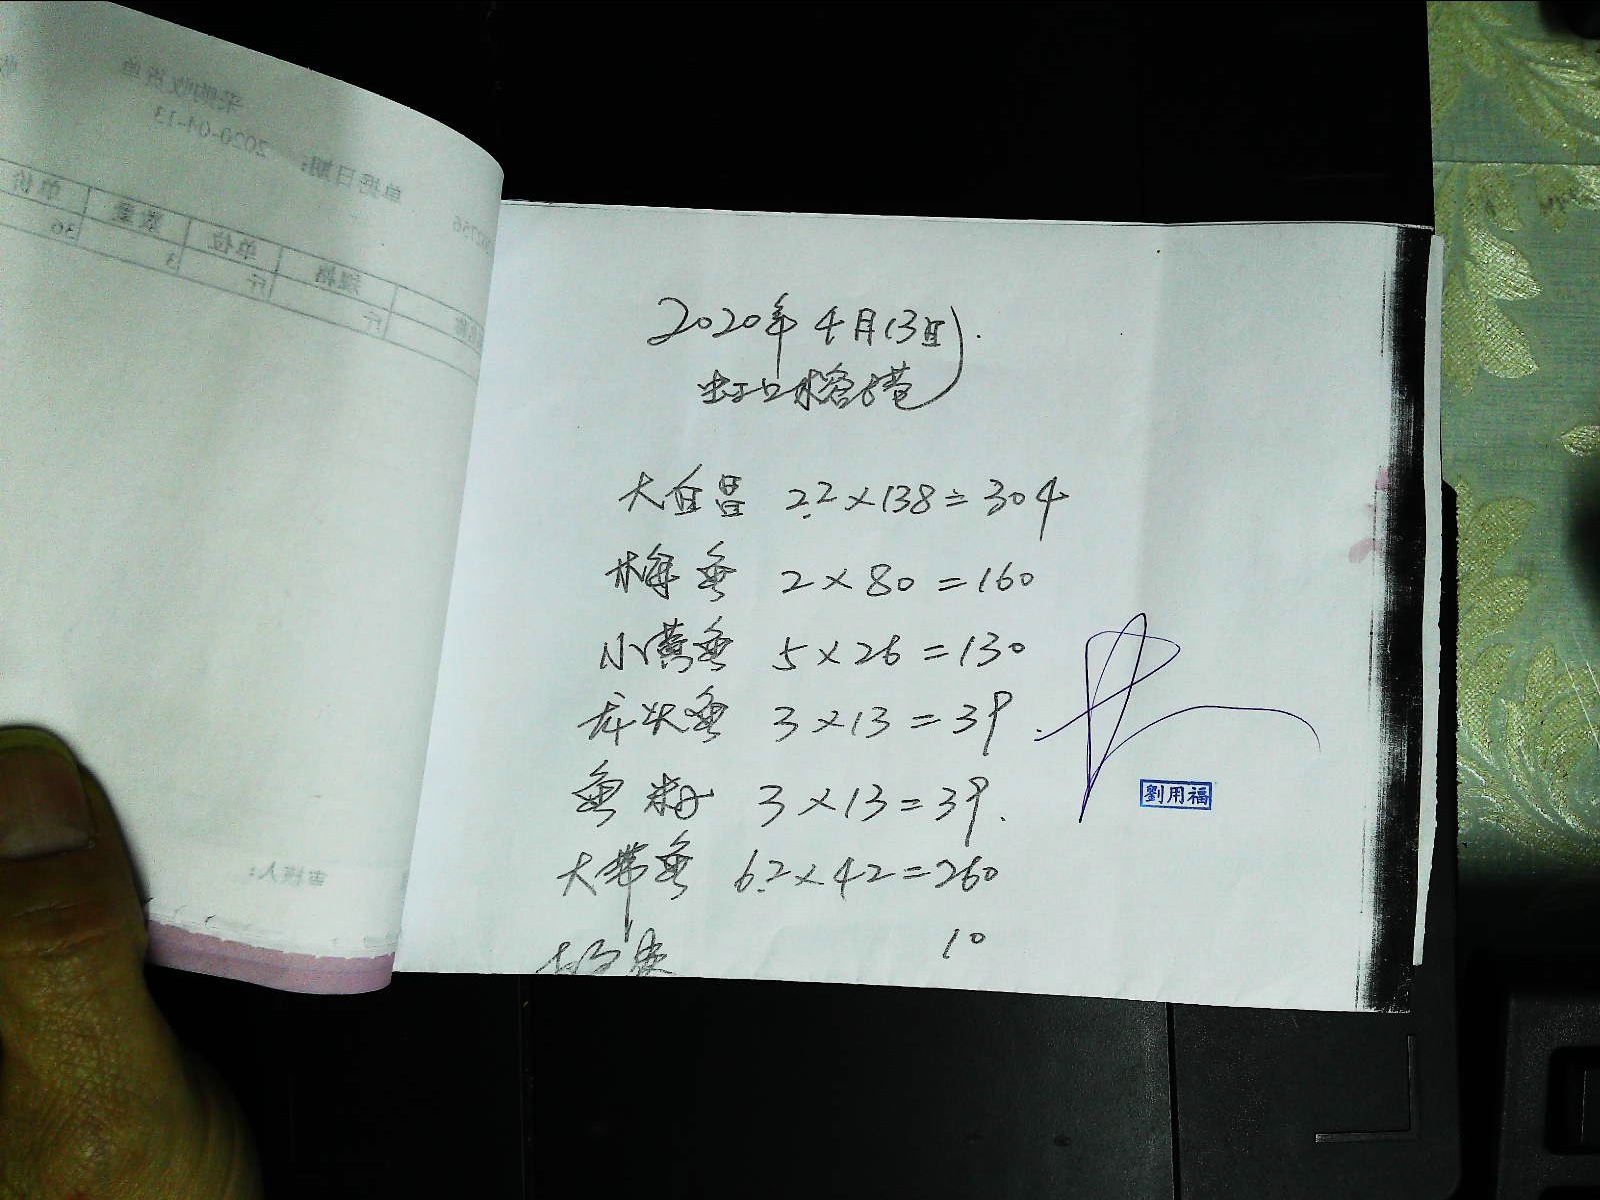 采购收货单
单据日期: 2020-04-13
规格 单位 数量 单价
斤 斤 3 36
审核人:
2020年4月13日
虹口榕港
大白昌 2.2×138=304
梅鱼 2×80=160
小黄鱼 5×26=130
龙头鱼 3×13=39
鱼籽 3×13=39.
大带鱼 6.2×42=260
10
劉用福